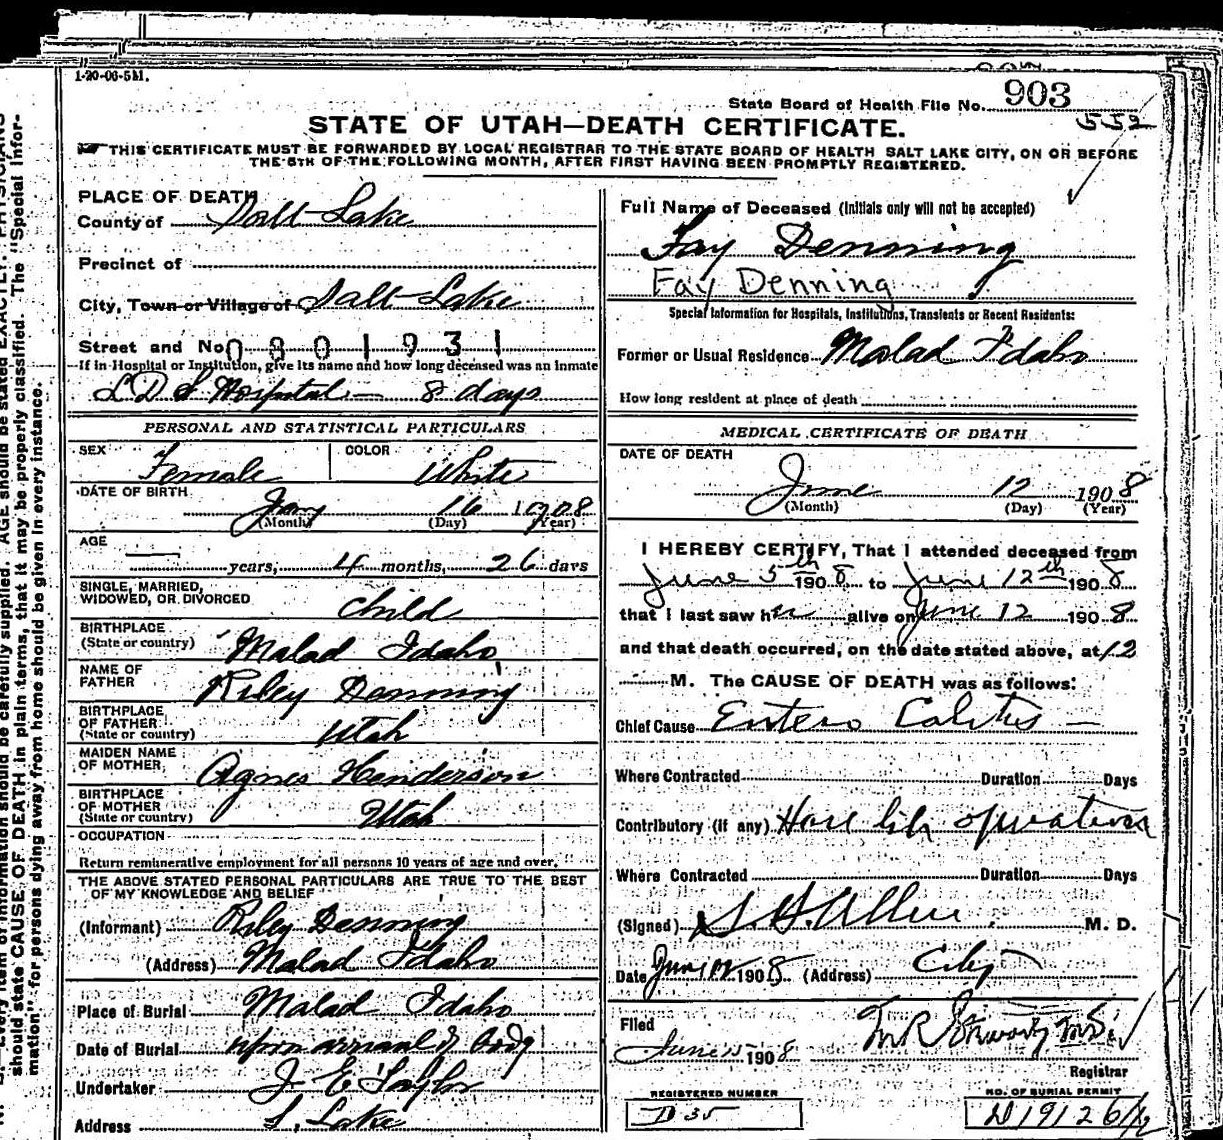 1-20-06-5M.
State Board of Health File No. 903
552
STATE OF UTAH—DEATH CERTIFICATE.
THIS CERTIFICATE MUST BE FORWARDED BY LOCAL REGISTRAR TO THE STATE BOARD OF HEALTH SALT LAKE CITY, ON OR BEFORE
THE 5TH OF THE FOLLOWING MONTH, AFTER FIRST HAVING BEEN PROMPTLY REGISTERED.
PLACE OF DEATH
County of Salt Lake
Precinct of
City, Town or Village of Salt Lake
Street and No. 0801931
If in Hospital or Institution, give its name and how long deceased was an inmate
L D S Hospital — 8 days
PERSONAL AND STATISTICAL PARTICULARS
SEX Female COLOR White
DATE OF BIRTH Jany 16 1908
(Month) (Day) (Year)
AGE
— years, 4 months, 26 days
SINGLE, MARRIED,
WIDOWED, OR DIVORCED Child
BIRTHPLACE
(State or country) Malad Idaho
NAME OF
FATHER Riley Denning
BIRTHPLACE
OF FATHER
(State or country) Utah
MAIDEN NAME
OF MOTHER Agnes Henderson
BIRTHPLACE
OF MOTHER
(State or country) Utah
OCCUPATION
Return remunerative employment for all persons 10 years of age and over.
THE ABOVE STATED PERSONAL PARTICULARS ARE TRUE TO THE BEST
OF MY KNOWLEDGE AND BELIEF
(Informant) Riley Denning
(Address) Malad Idaho
Place of Burial Malad Idaho
Date of Burial upon arrival of body
Undertaker J E Taylor
Address S. Lake
Full Name of Deceased (Initials only will not be accepted)
Fay Denning
Fay Denning
Special Information for Hospitals, Institutions, Transients or Recent Residents:
Former or Usual Residence Malad Idaho
How long resident at place of death
MEDICAL CERTIFICATE OF DEATH
DATE OF DEATH
June 12 1908
(Month) (Day) (Year)
I HEREBY CERTIFY, That I attended deceased from
June 5th 1908 to June 12th 1908
that I last saw her alive on June 12 1908
and that death occurred, on the date stated above, at 12
M. The CAUSE OF DEATH was as follows:
Chief Cause Entero Colitis —
Where Contracted Duration Days
Contributory (if any) Hare lip operation
Where Contracted Duration Days
(Signed) S. H. Allen M. D.
Date June 12 1908 (Address) City
Filed
June 15 1908
Registrar
REGISTERED NUMBER
D 35
NO. OF BURIAL PERMIT
should state CAUSE OF DEATH in plain terms, that it may be properly classified. The "Special Infor-
mation" for persons dying away from home should be given in every instance.